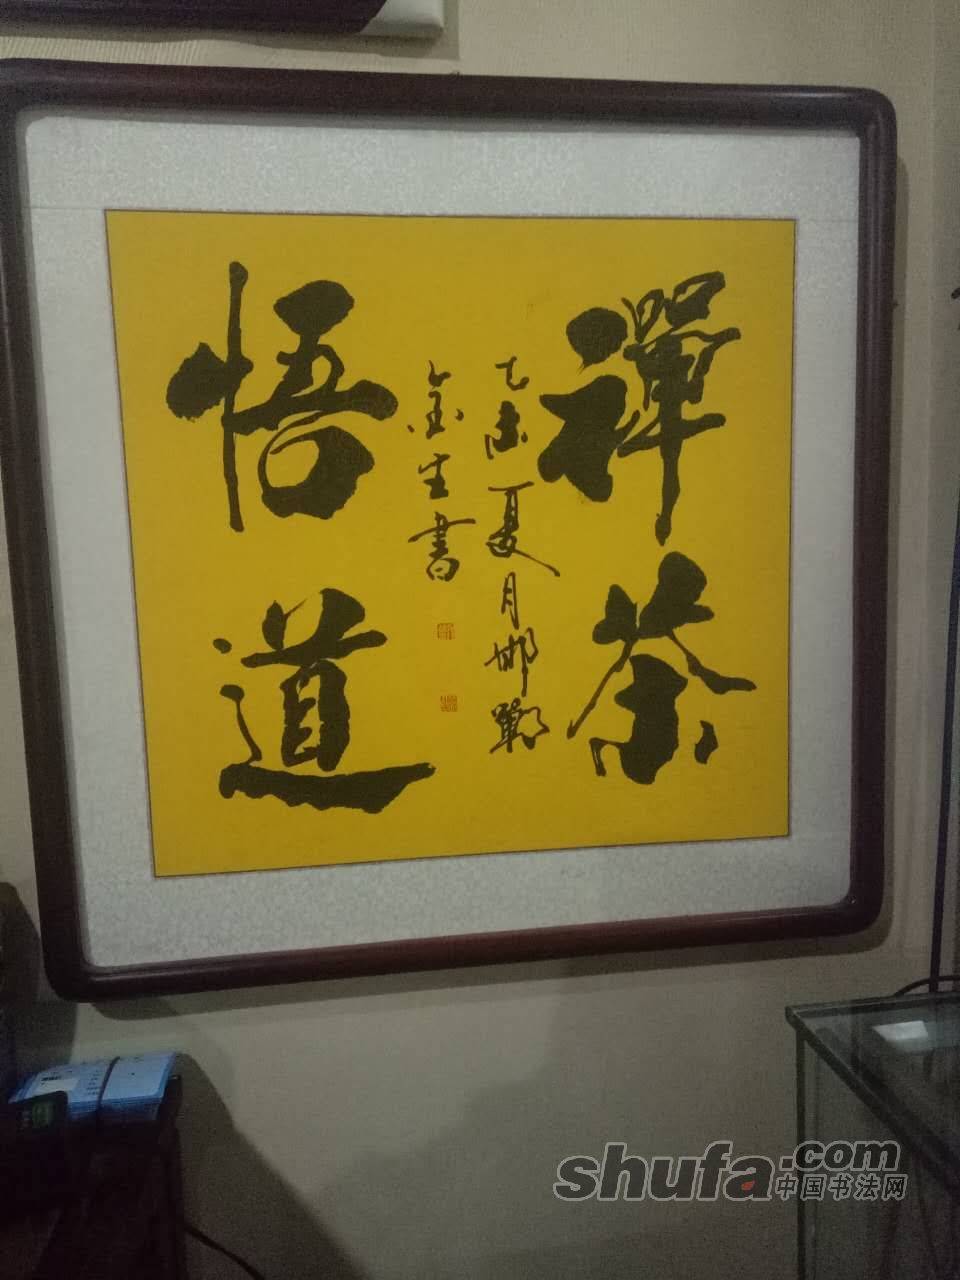 禪茶
悟道
乙未夏月邯鄲
金生書
shufa.com
中国书法网